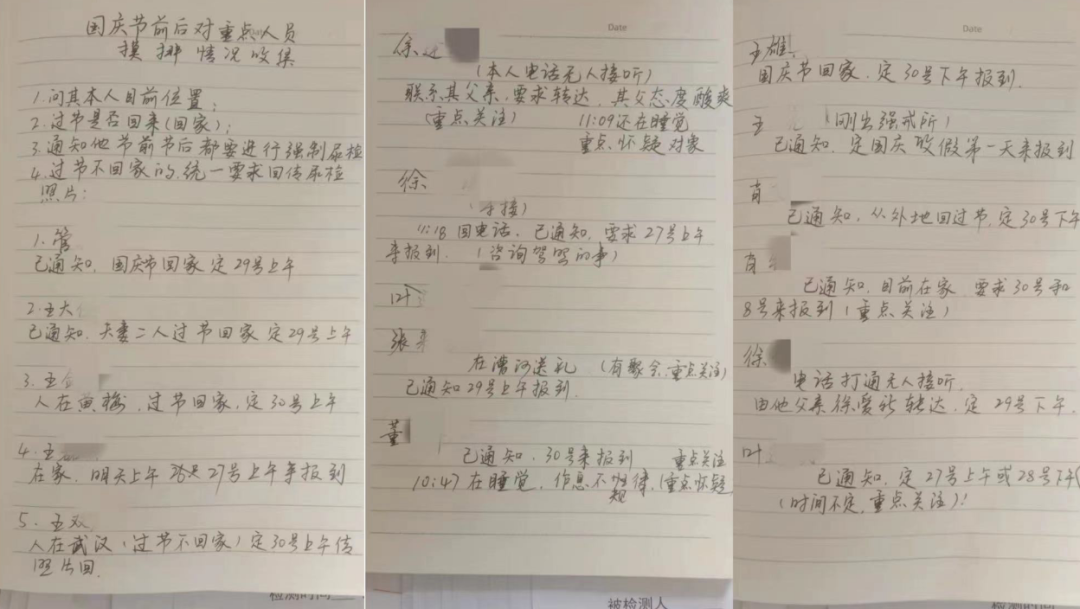 国庆节前后对重点人员
摸排情况收集
1.问其本人目前位置；
2.过节是否回来（回家）；
3.通知他节前节后都要进行强制尿检
4.过节不回家的，统一要求回传尿检
照片：
1.管
已通知，国庆节回家定29号上午
2.王大
已通知，夫妻二人过节回家定29号上午
3.王
人在黄梅，过节回家，定30号上午
4.王
在家，明天上午 27号上午等报到
5.王
人在武汉（过节不回家）定30号上午传
照片回.
Date
余
（本人电话无人接听）
联系其父亲，要求转达，其父态度酸爽
（重点关注） 11:09还在睡觉
重点怀疑对象
徐
接）
11:18回电话，已通知，要求27号上午
等报到. （咨询驾驾的事）
叶
张
在漕河送礼（有聚会，重点关注）
已通知29号上午报到.
董
已通知，30号来报到 重点关注
10:47在睡觉，作息不规律，（重点怀疑
被检测人
检测时间
Date
王雄
国庆节回家，定30号下午报到.
王 （刚出强戒所）
已通知，定国庆收假第一天来报到
肖
已通知，从外地回过节，定30号下午
肖
已通知，目前在家，要求30号和
8号来报到（重点关注）
徐
电话打通无人接听，
由他父亲徐 转达，定29号下午.
叶
已通知，定27号上午或28号下午
（时间不定，重点关注）！